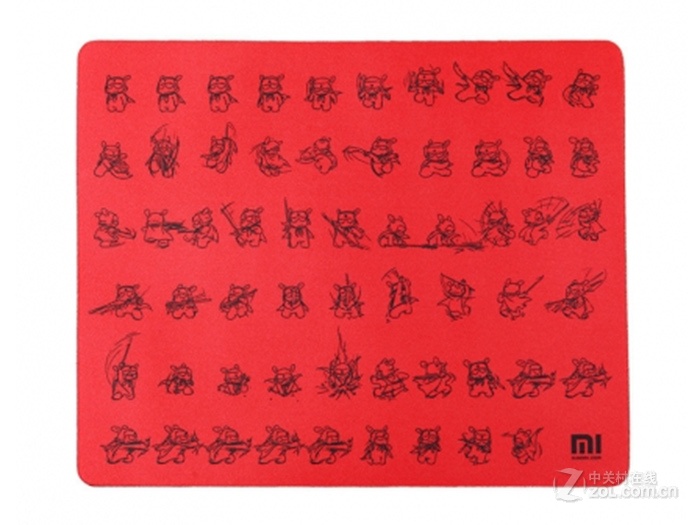 mi
xiaomi.com
中关村在线
zol.com.cn